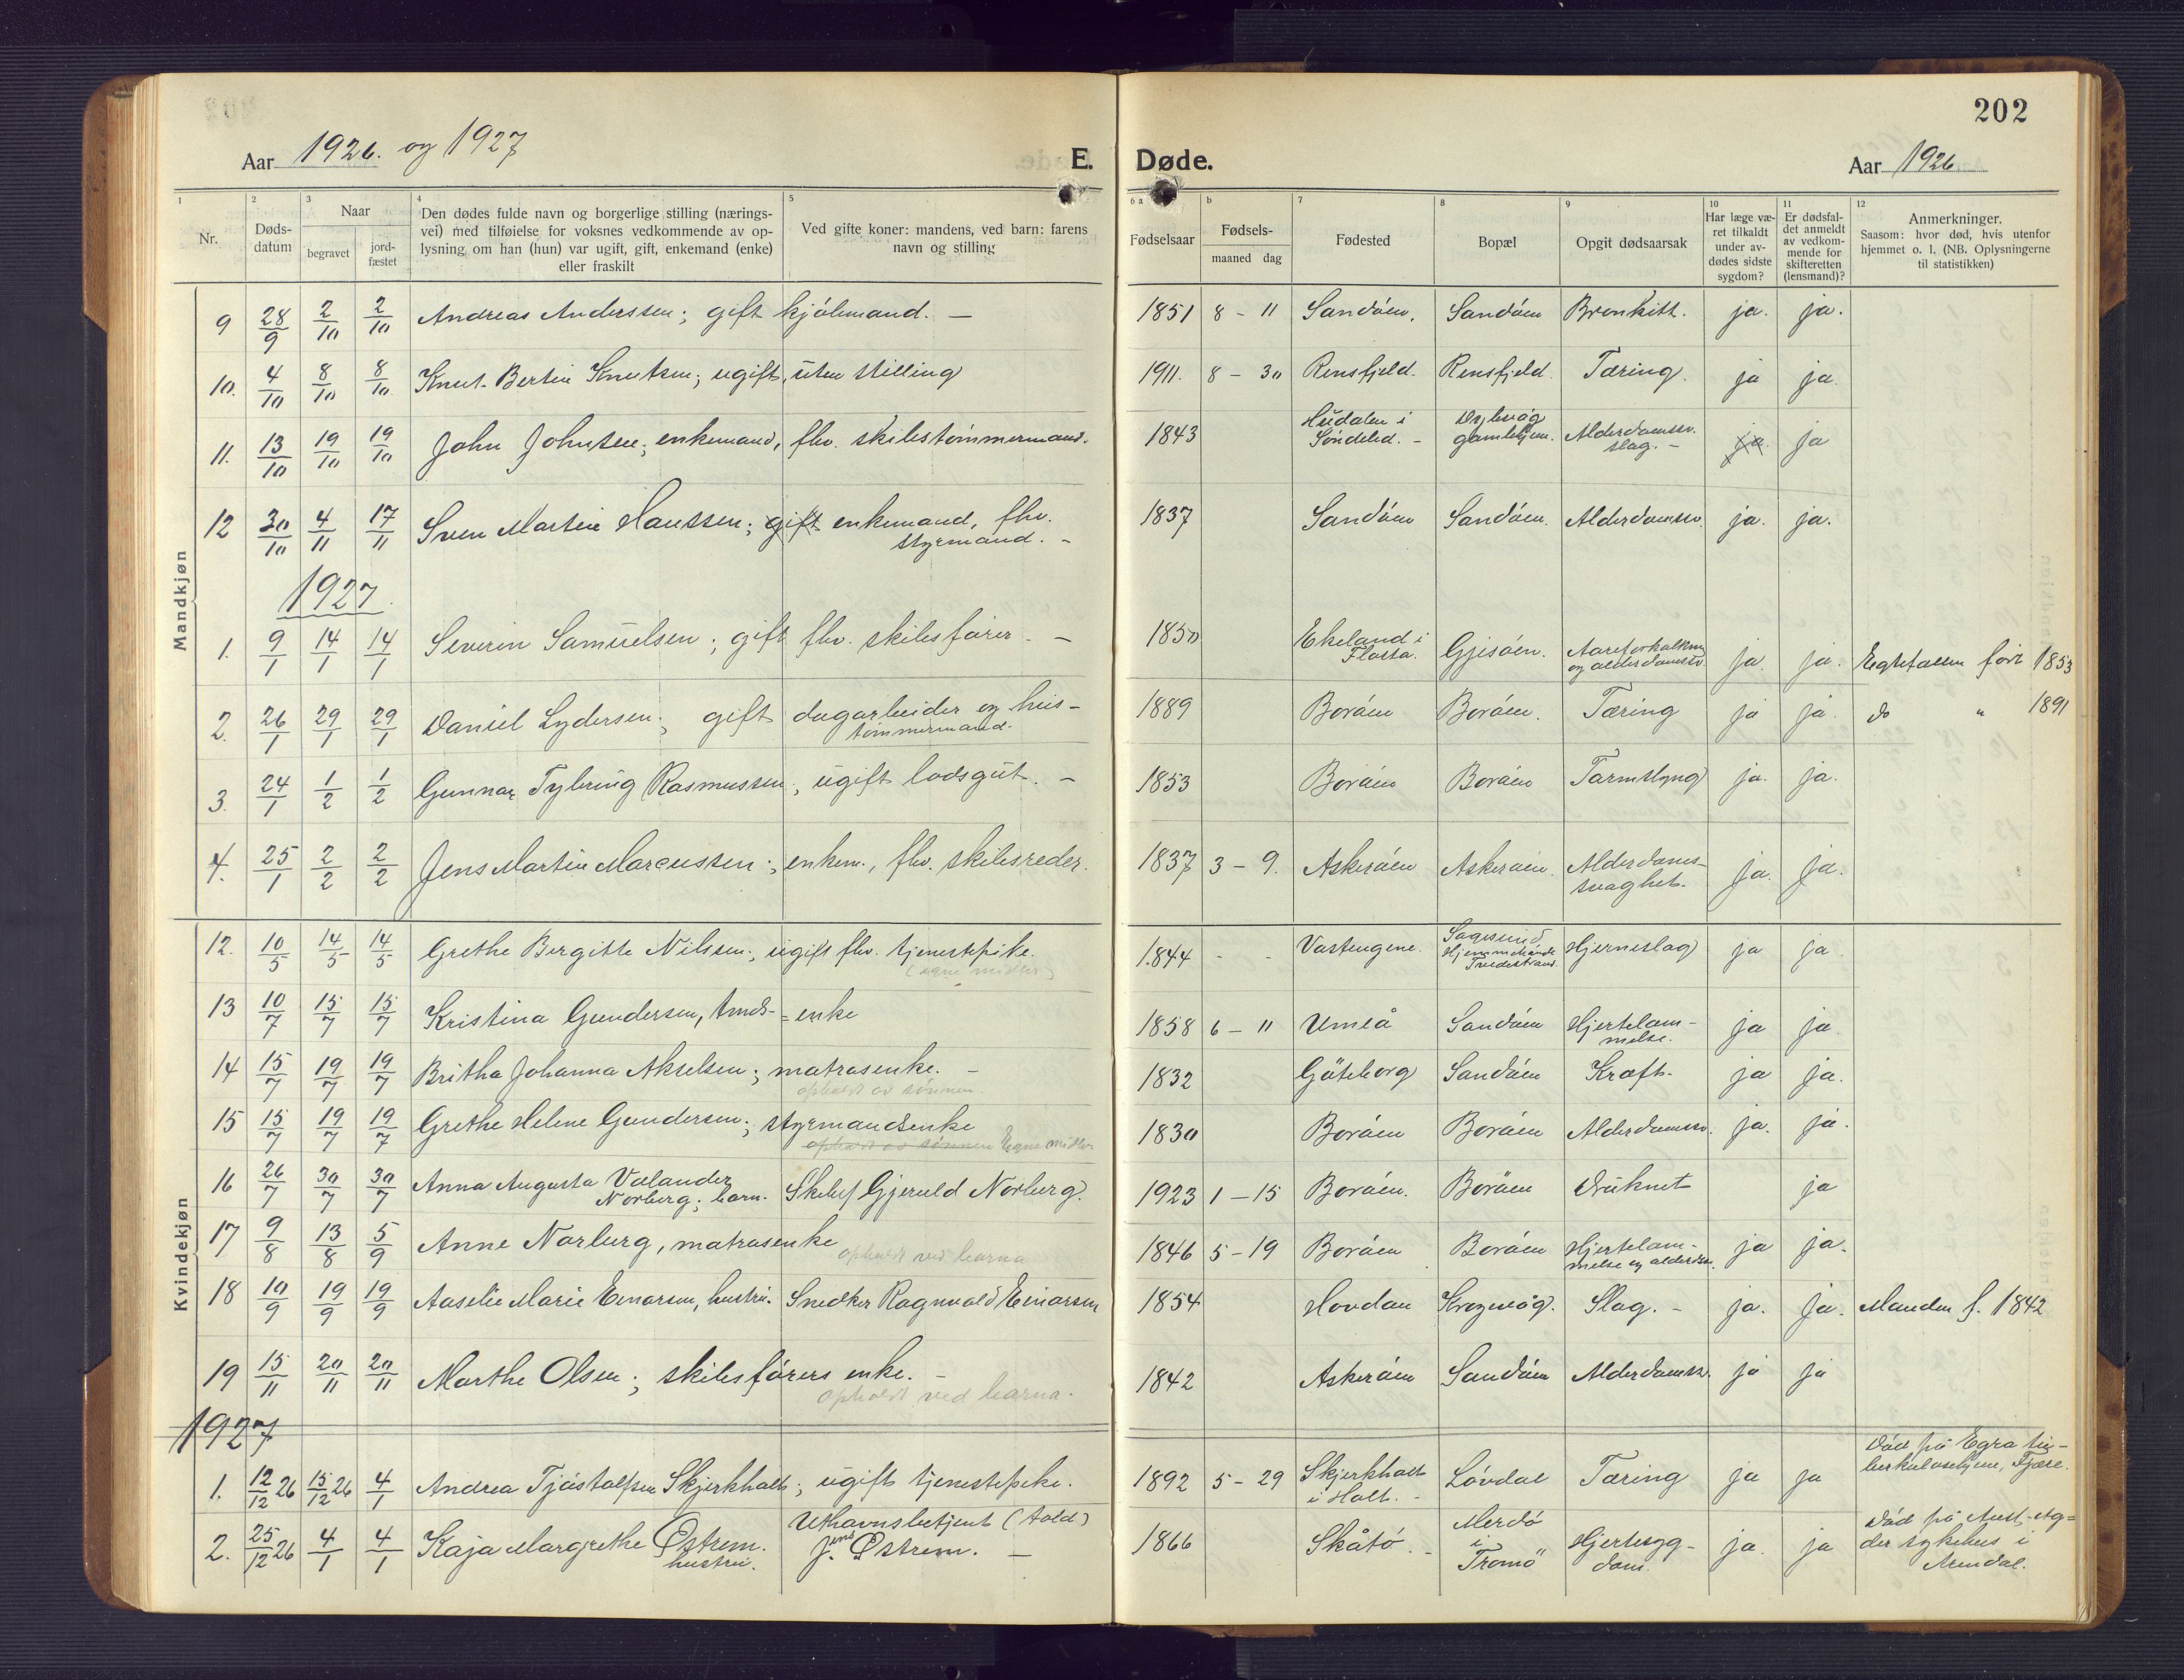 202
Aar 1926. og 1927
E. Døde.
Aar 1926
1 2 3 4 5 6 a b 7 8 9 10 11 12
Nr.
Døds-
datum
Naar
begravet
jord-
fæstet
Den dødes fulde navn og borgerlige stilling (nærings-
vei) med tilføielse for voksnes vedkommende av op-
lysning om han (hun) var ugift, gift, enkemand (enke)
eller fraskilt
Ved gifte koner: mandens, ved barn: farens
navn og stilling
Fødselsaar
Fødsels-
maaned dag
Fødested
Bopæl
Opgit dødsaarsak
Har læge væ-
ret tilkaldt
under av-
dødes sidste
sygdom?
Er dødsfal-
det anmeldt
av vedkom-
mende for
skifteretten
(lensmand)?
Anmerkninger.
Saasom: hvor død, hvis utenfor
hjemmet o. l. (NB. Oplysningerne
til statistikken)
Mandkjøn
9 28/9 2/10 2/10 Andreas Anderssen; gift kjølemand. — 1851 8 - 11 Sandöen. Sandöen Bronkitt. ja. ja.
10. 4/10 8/10 8/10 Knut Bertin Knutsen; ugift, uten stilling 1911. 8 - 30 Rensfjeld. Rensfjeld. Tæring. ja ja.
11. 13/10 19/10 19/10 John Johnsen; enkemand, fhv. skibstömmermand. 1843 Hüdalen i Söndeled. - Dybvåg gamlehjem. Alderdomssv. slag. - ja. ja
12 30/10 4/11 17/11 Sven Martin Hanssen; gift enkemand, fhv. styrmand. - 1837 Sandöen Sandöen. Alderdomssv. ja. ja.
1927.
1. 9/1 14/1 14/1 Severin Samuelsen; gift fhv. skibsförer. — 1850 Ekeland i Flosta. Gjesöen. Aareforkalkn. og alderdomssv. ja. ja. Egtefællen född 1853
2. 26/1 29/1 29/1 Daniel Lydersen; gift dagarbeider og hus-
tömmermand. 1889 Boröen Boröen. Tæring ja ja. do " 1891
3. 24/1 1/2 1/2 Gunnar Tybring Rasmussen; ugift lodsgut. - 1853 Boröen Boröen Tarmslyng ja. ja.
4. 25/1 2/2 2/2 Jens Martin Marcussen; enkem., fhv. skibsreder. 1837 3 - 9. Askeröen Askeröen. Alderdoms-
svaghet. ja. ja.
Kvindekjøn
12. 10/5 14/5 14/5 Grethe Birgitte Nilssen; ugift fhv. tjenestepike.
(egne midler) 1844 - - Vastengene. Sagesund Tvedestrand. Hjerneslag ja ja.
13 10/7 15/7 15/7 Kristina Gundersen, = enke 1858 6 - 11 Umeå Sandöen Hjertelam-
melse. ja ja.
14 15/7 19/7 19/7 Britha Johanna Akselsen; matrosenke. -
opholdt av sönnen 1832 Göteborg Sandöen Kræft. ja ja.
15 15/7 19/7 19/7 Grethe Helene Gundersen; styrmandsenke
opholdt av sönnen Egne midler 1830 Boröen Boröen Alderdomssv. ja. ja.
16 26/7 30/7 30/7 Anna Augusta Valander Norberg; barn. Skibsf Gjeruld Norberg. 1923 1 - 15 Boröen. Boröen Druknet ja
17 9/8 13/8 5/9 Anne Norberg, matrosenke
opholdt ved barna 1846 5 - 19 Boröen Boröen Hjertelam-
melse og alderdom. ja ja.
18 10/9 19/9 19/9 Aaselie Marie Einarsen, hustru. Snedker Ragnvald Einarsen 1854 Hovdan Krogevåg. Slag. - ja. ja. Manden f. 1842
19 15/11 20/11 20/11 Marthe Olsen; skibsförers enke. -
opholdt ved barna. 1842 Askeröen Sandöen Alderdomssv. ja ja
1927
1. 12/12 26 15/12 26 4/1 Andrea Tjöstolfsen Skjerkholt; ugift tjenestepike. 1892 5 - 29 Skjerkholt i Holt. - Lövdal Tæring ja ja Död på Egra tu-
berkulosehjem, Fjære.
2. 25/12 26 4/1 4/1 Kaja Margrethe Östrem. hustru. Uthavnsbetjent (told) Jens Östrem. — 1866 Skåtö. - Merdö i Tromö Hjertesyg-
dom. ja. ja Död på Aust-Ag-
der sykehus i Arendal.